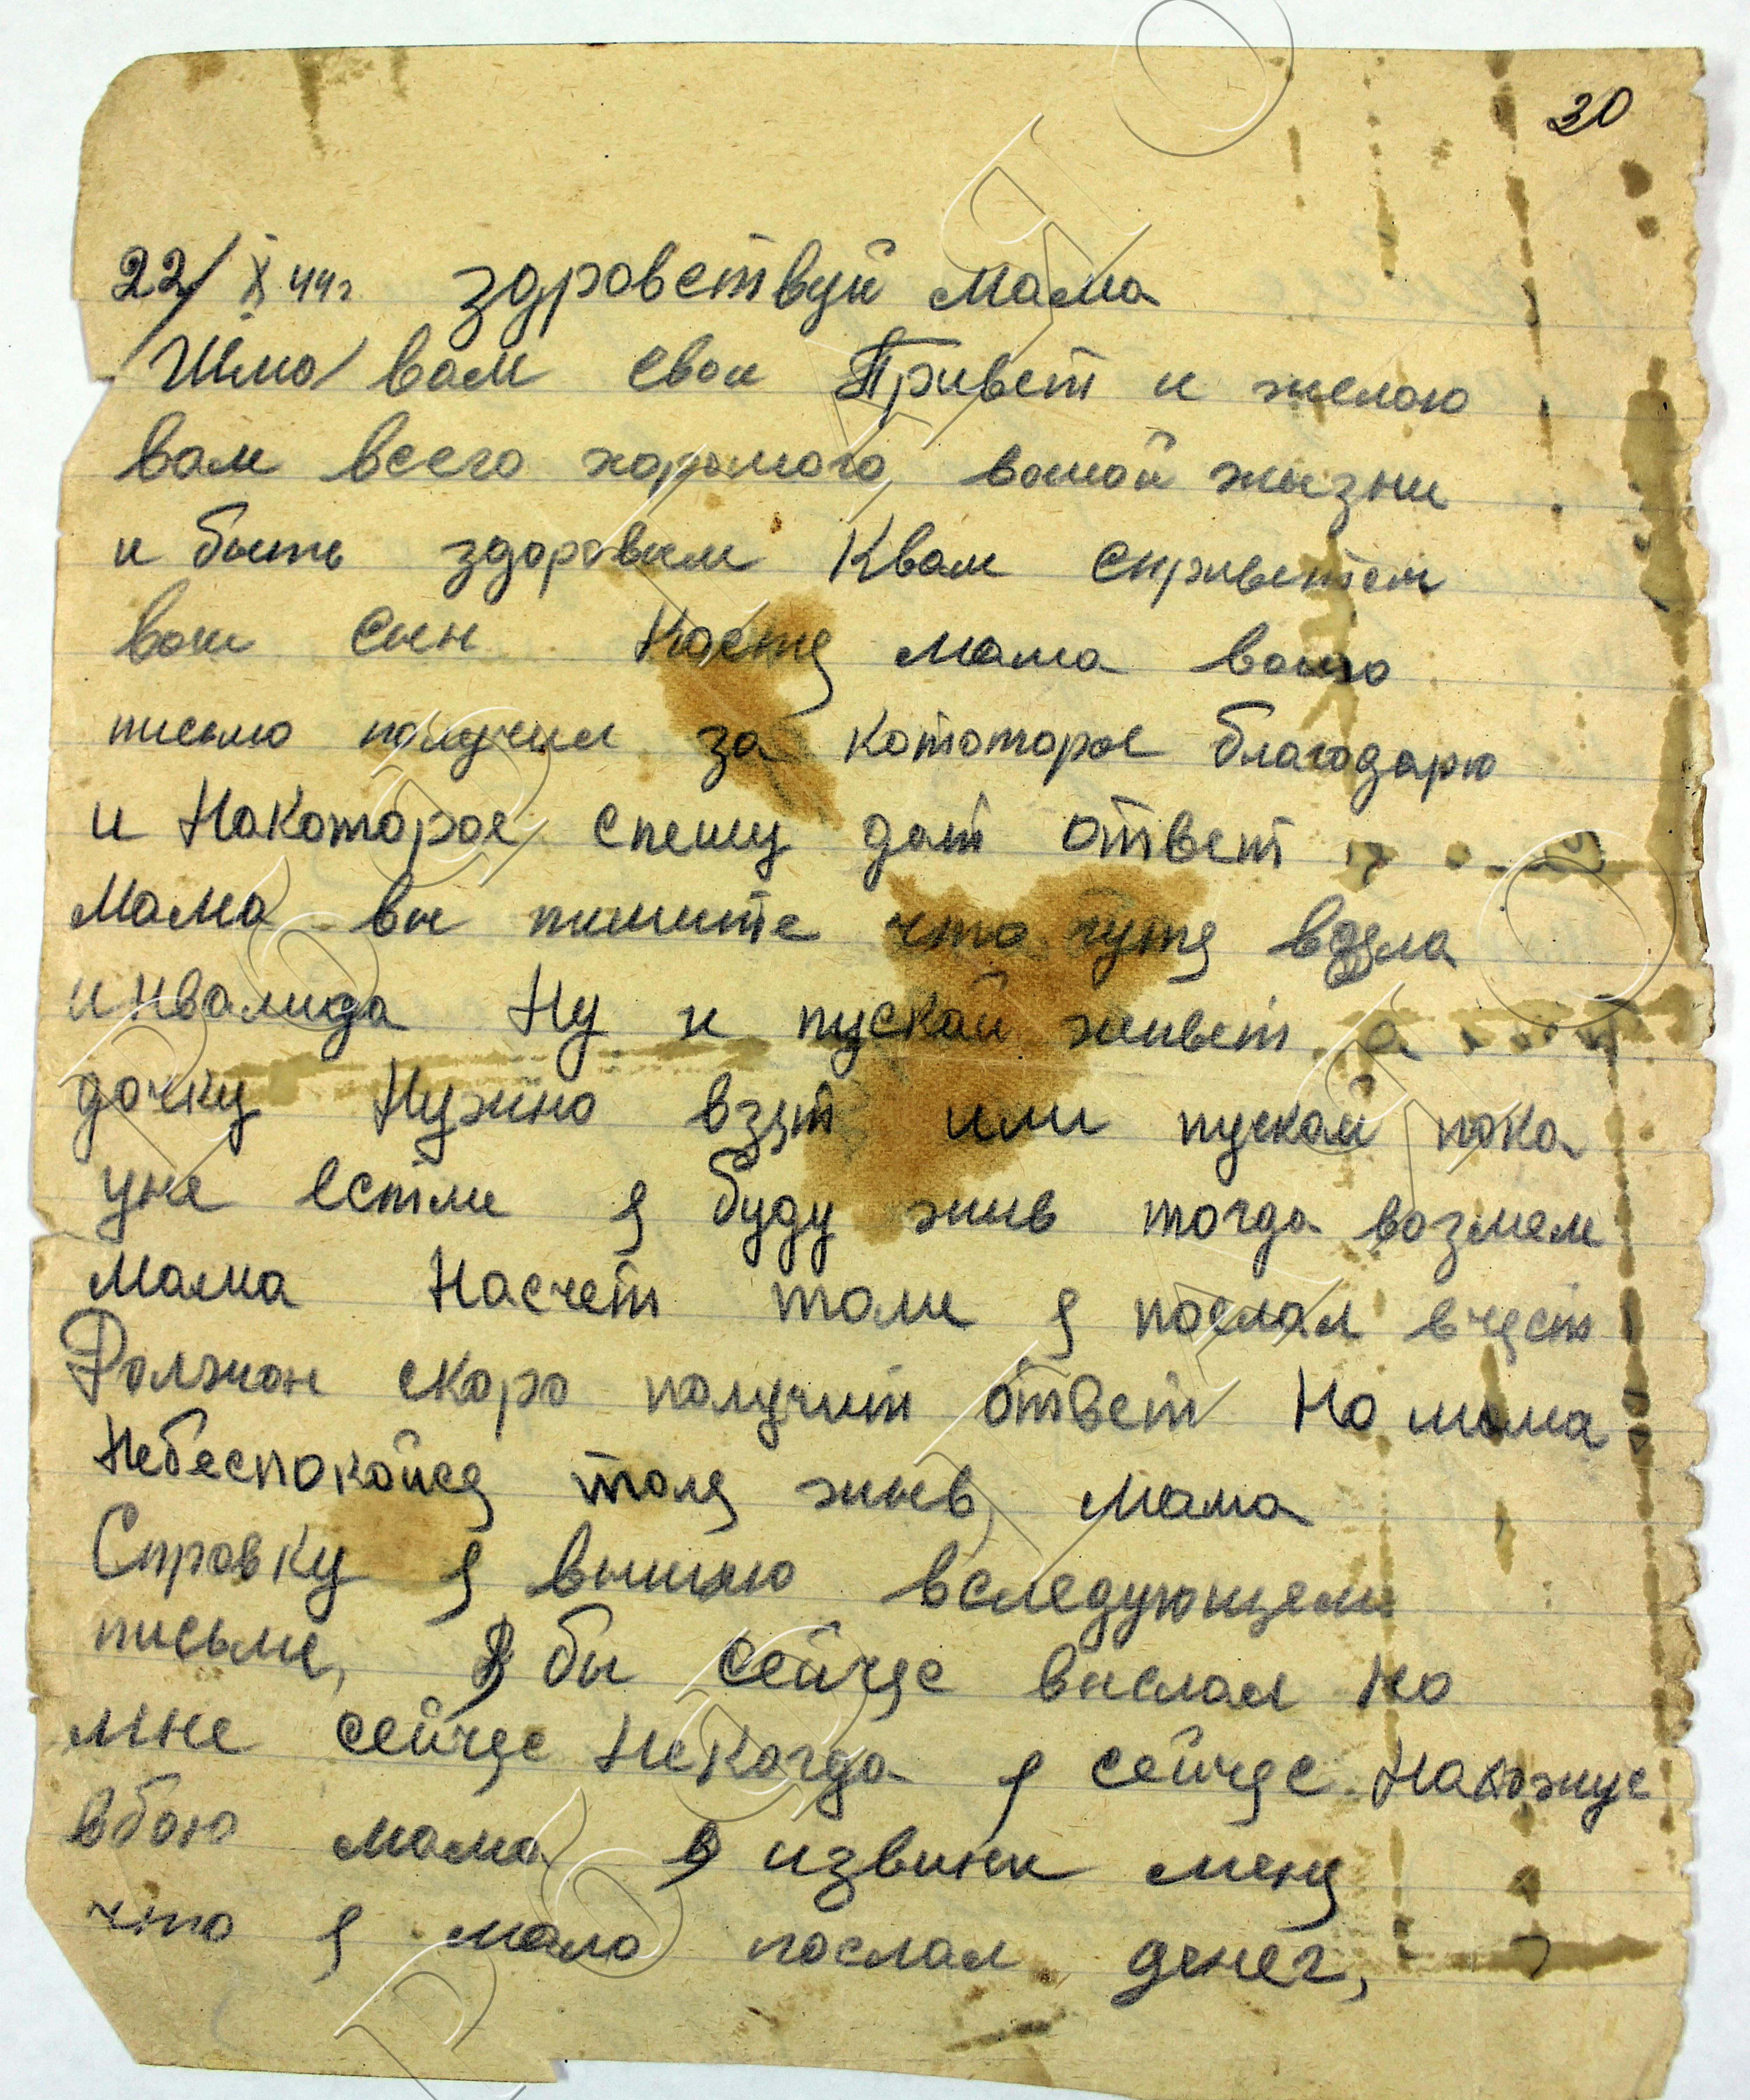 30
22/X 44г здровствуй Мама
Шлю вам свой Привет и желаю
вам всего хорошого вашой жызни
и быть здоровым Квам сприветом
ваш сын Костя Мама вашо
письмо получил за кототорое благодарю
и Накоторое спешу дат ответ
Мама вы пишите что
инвалида Ну и пускай живет а
дочку Нужно взят или пускай пока
уне естли я буду жыв тогда возмем
Мама Насчет толи я послал вчаст
Должон скоро получит ответ Но мама
Небеспокойся толя жыв, Мама
Справку я вышлю вследующем
письме, Я бы сейчяс выслал но
мне сейчяс Некогда я сейчяс Нахожус
вбою мама извини меня
что я мало послал денег,